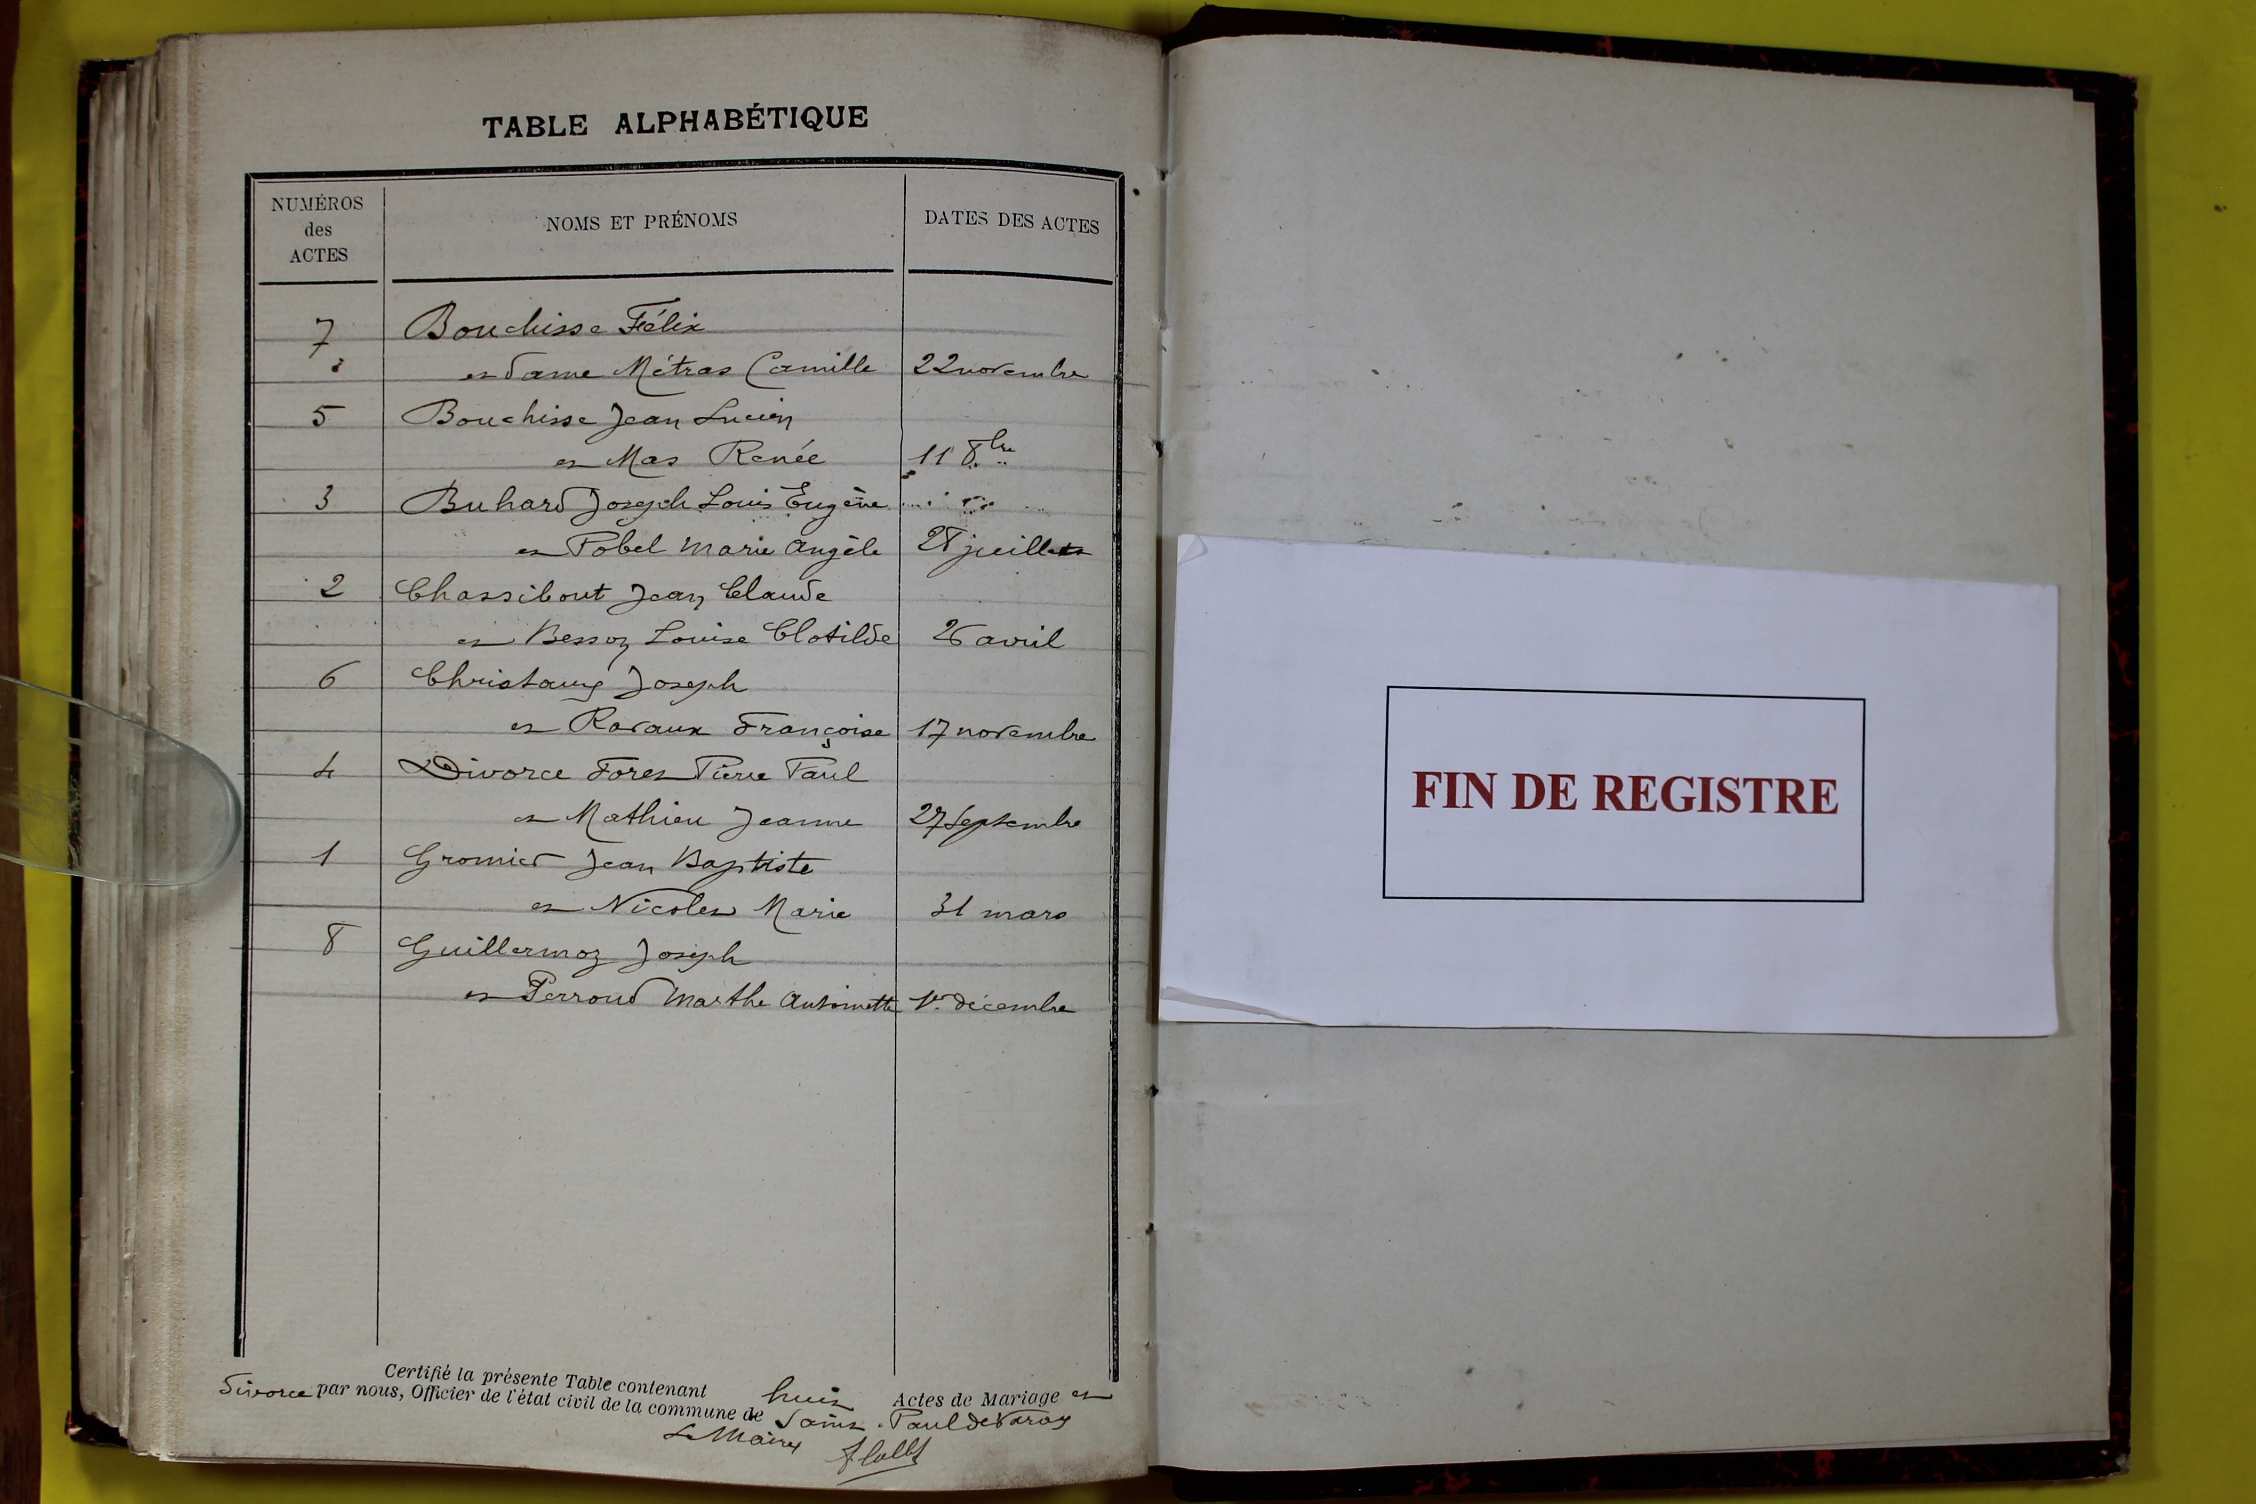 TABLE ALPHABÉTIQUE
NUMÉROS
des
ACTES
NOMS ET PRÉNOMS
DATES DES ACTES
7 Bouchisse Félix
et dame Métras Camille 22 novembre
5 Bouchisse Jean Lucien
et Mas Renée 11 8bre
3 Buhard Joseph Louis Eugène
et Pobel Marie Angèle 28 juillet
2 Chassibout Jean Claude
et Besson Louise Clotilde 26 avril
6 Christaux Joseph
et Ravaux Françoise 17 novembre
4 Divorce Forest Pierre Paul
et Mathieu Jeanne 27 Septembre
1 Gromier Jean Baptiste
et Nicolet Marie 31 mars
8 Guillermoz Joseph
et Perroud Marthe Antoinette 1er décembre
Certifié la présente Table contenant huit Actes de Mariage et
Divorce par nous, Officier de l'état civil de la commune de Saint-Paul de Varax
Le Maire
FIN DE REGISTRE